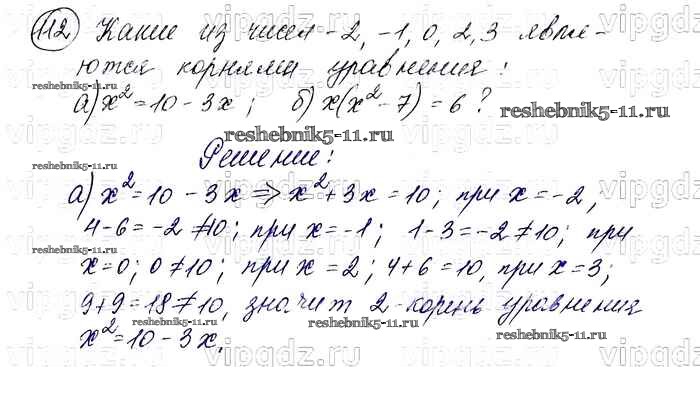 112 Какие из чисел -2, -1, 0, 2, 3 явля-
ются корнями уравнения:
а) x² = 10 - 3x ; б) x(x² - 7) = 6 ?
Решение:
а) x² = 10 - 3x ⇒ x² + 3x = 10; при x = -2,
4 - 6 = -2 ≠ 10; при x = -1; 1 - 3 = -2 ≠ 10; при
x = 0; 0 ≠ 10; при x = 2; 4 + 6 = 10, при x = 3;
9 + 9 = 18 ≠ 10, значит 2 - корень уравнения
x² = 10 - 3x.
vipgdz.com
reshebnik5-11.ru